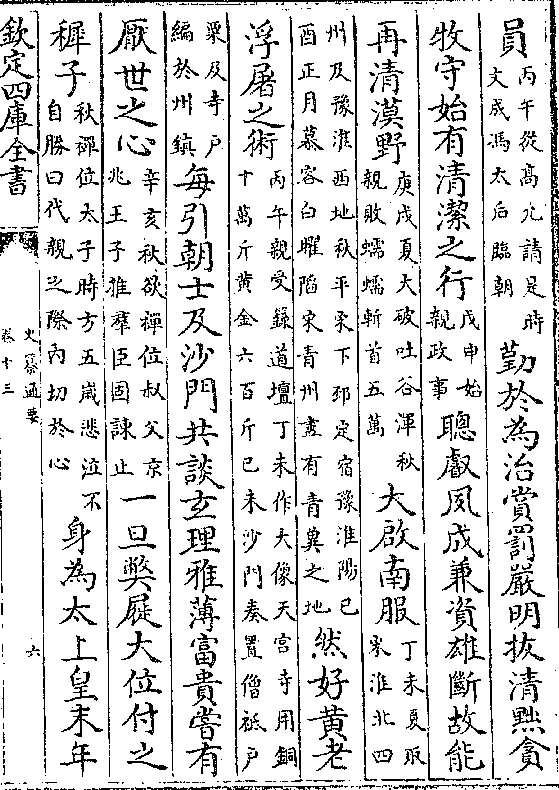 員丙午從髙允請是時
文成馮太后臨朝勤於為治賞罰嚴明拔清黜貪
牧守始有清潔之行戊申始
親政事聰叡夙成兼資雄斷故能
再清漠野庚戌夏大破吐谷渾秋
親敗蠕蠕斬首五萬大啟南服丁未夏取
宋淮北四
州及豫淮西地秋平宋下邳定宿豫淮陽己
酉正月慕容白曜陷宋青州盡有青冀之地然好黃老
浮屠之術丙午親受籙道壇丁未作大像天宮寺用銅
十萬斤黃金六百斤己未沙門奏置僧祗戶
粟及寺戶
編於州鎮每引朝士及沙門共談玄理雅薄富貴嘗有
厭世之心辛亥秋欲禪位叔父京
兆王子雅羣臣固諫止一旦獘屣大位付之
穉子秋禪位太子時方五嵗悲泣不
自勝曰代親之際內切於心身為太上皇末年
欽定四庫全書
史纂通要
卷十三
六